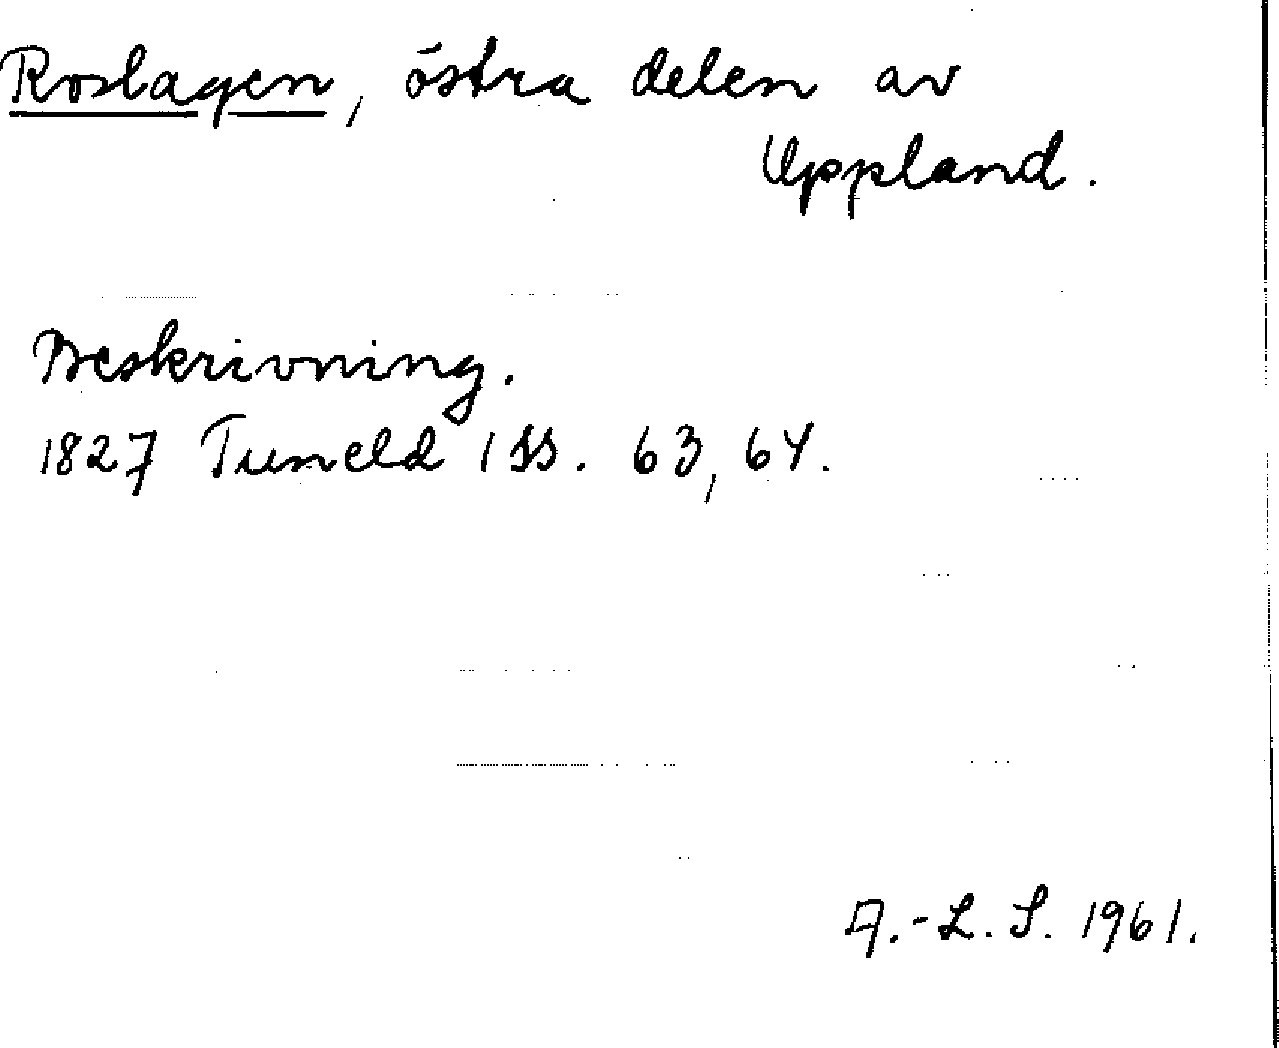 Roslagen, östra delen av
Uppland.
Beskrivning.
1827 Tuneld 1 ss. 63, 64.
A.-L. S. 1961.